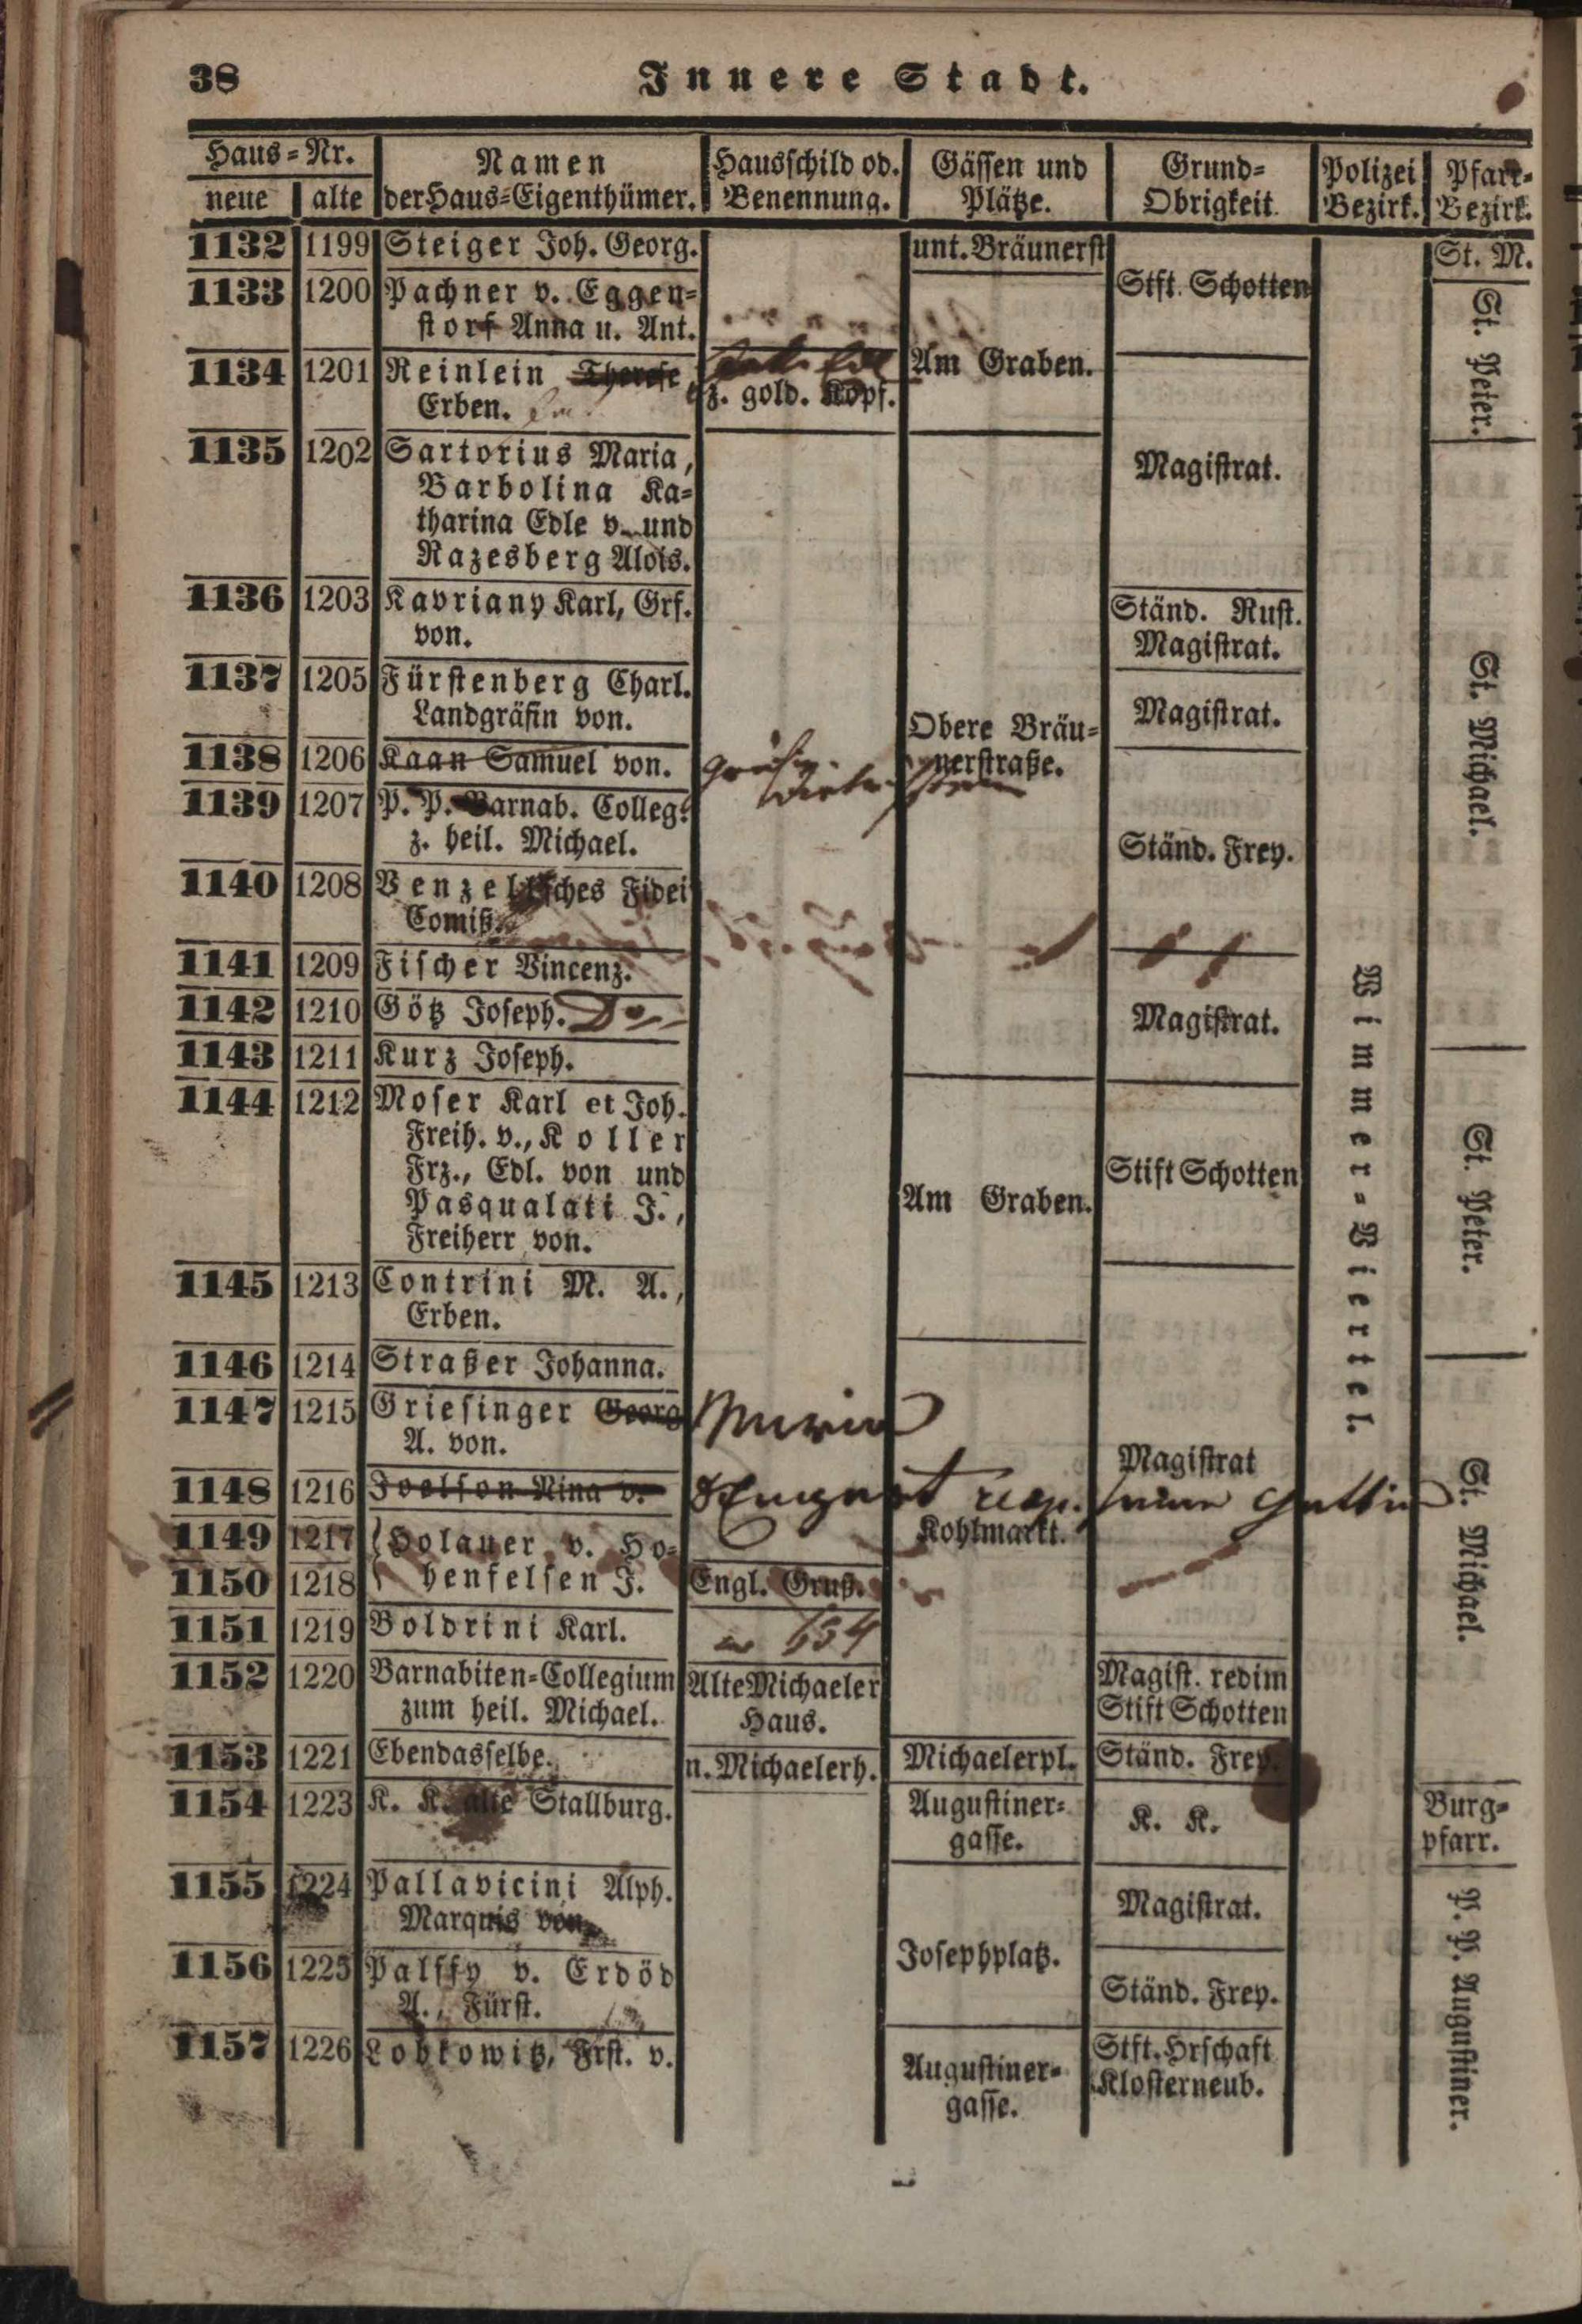 38
Innere Stadt.
Haus=Nr.
neue alte
Namen
der Haus=Eigenthümer.
Hausschild od.
Benennung.
Gässen und
Plätze.
Grund=
Obrigkeit.
Polizei
Bezirk.
Pfarr=
Bezirk.
1132 1199 Steiger Joh. Georg. unt. Bräunerst St. M.
1133 1200 Pachner v. Eggen= Stft. Schotten St. Peter.
storf Anna u. Ant.
1134 1201 Reinlein Therese, Am Graben.
Erben. z. gold. Kopf.
1135 1202 Sartorius Maria, Magistrat.
Barbolina Ka=
tharina Edle v. und
Razesberg Alois.
1136 1203 Kavriany Karl, Grf. Ständ. Rust.
von. Magistrat.
1137 1205 Fürstenberg Charl. Magistrat. St. Michael.
Landgräfin von. Obere Bräu=
1138 1206 Kaan Samuel von. nerstraße.
1139 1207 P. P. Barnab. Colleg.
z. heil. Michael. Ständ. Frey.
1140 1208 Venzellsches Fidei
Comiß.
1141 1209 Fischer Vincenz.
1142 1210 Götz Joseph. Magistrat.
1143 1211 Kurz Joseph.
1144 1212 Moser Karl et Joh.
Freih. v., Koller
Frz., Edl. von und Stift Schotten St. Peter.
Pasqualati J., Am Graben.
Freiherr von.
Wimmer=Viertel.
1145 1213 Contrini M. A.,
Erben.
1146 1214 Straßer Johanna.
1147 1215 Griesinger Georg
A. von. Magistrat
1148 1216 Joelson Nina v. St. Michael.
1149 1217 Holauer v. Ho= Kohlmarkt.
1150 1218 henfelsen J. Engl. Gruß.
1151 1219 Boldrini Karl. 654
1152 1220 Barnabiten=Collegium Alte Michaeler Magist. redim
zum heil. Michael. Haus. Stift Schotten
1153 1221 Ebendasselbe. n. Michaelerh. Michaelerpl. Ständ. Frey.
1154 1223 K. K. alte Stallburg. Augustiner= K. K. Burg=
gasse. pfarr.
1155 1224 Pallavicini Alph. Magistrat.
Marquis von. Josephplatz. P. P. Augustiner.
1156 1225 Palffy v. Erdöd Ständ. Frey.
A., Fürst.
1157 1226 Lobkowitz, Frst. v. Augustiner= Stft. Hrschaft
gasse. Klosterneub.